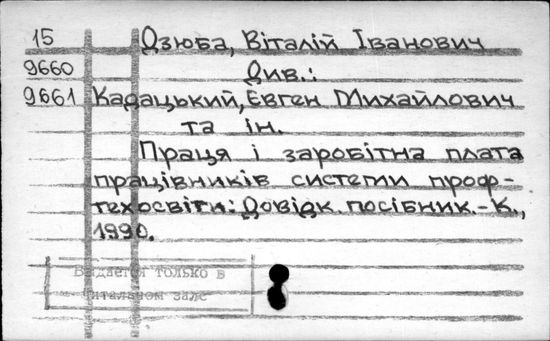 15 Дзюба, Віталій Іванович
9660 Див.:
9661 Кадацький, Євген Михайлович
та ін.
Праця і заробітна плата
працівників системи проф-
техосвіти: Довідк. посібник.-К.,
1990.
Выдается только в
читальном зале